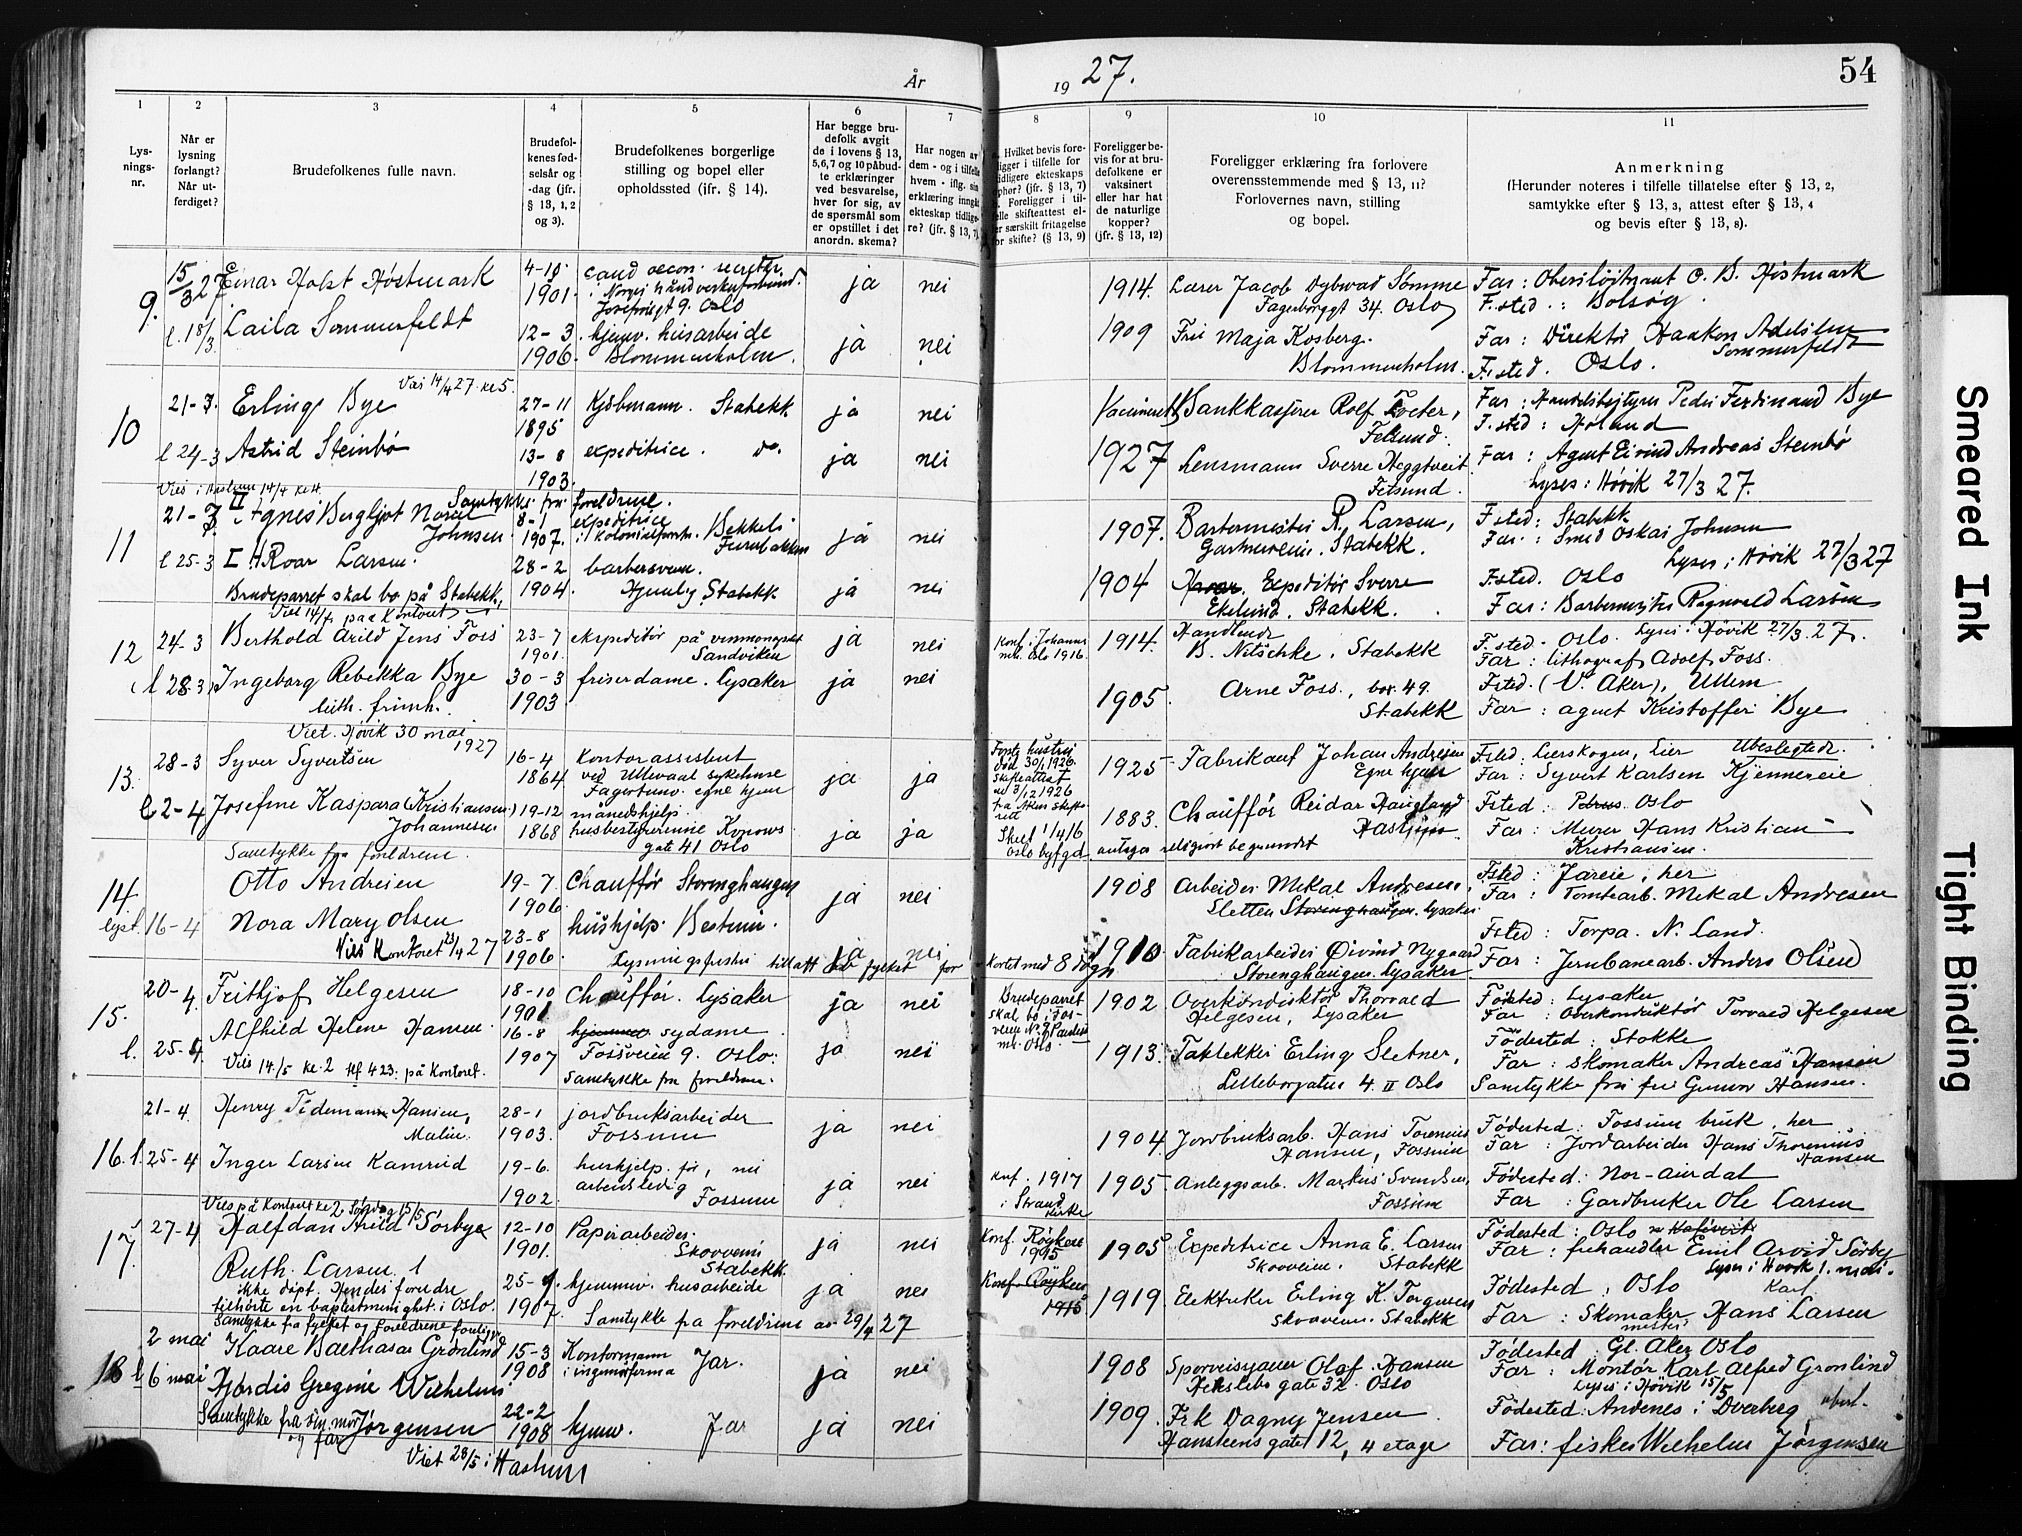 År
19 27.
54
1
2
3
4
5
6
7
8
9
10
11
Lys-
nings-
nr.
Når er
lysning
forlangt?
Når ut-
ferdiget?
Brudefolkenes fulle navn.
Brudefol-
kenes fød-
selsår og
-dag (jfr.
§ 13, 1, 2
og 3).
Brudefolkenes borgerlige
stilling og bopel eller
opholdssted (ifr. § 14).
Har begge bru-
defolk avgit
de i lovens § 13,
5,6,7 og 10 påbud-
te erklæringer
ved besvarelse,
hver for sig, av
de spørsmål som
er opstillet i det
anordn. skema?
Har nogen av
dem - og i tilfelle
hvem - iflg. sin
erklæring inngått
ekteskap tidlige-
re? (jfr. § 13, 7)
Hvilket bevis fore-
ligger i tilfelle for
tidligere ekteskaps
ophør? (jfr. § 13, 7)
Foreligger i til-
felle skifteattest el-
ler særskilt fritagelse
for skifte? (§ 13, 9)
Foreligger be-
vis for at bru-
defolkene er
vaksinert
eller har hat
de naturlige
kopper?
(jfr. § 13, 12)
Foreligger erklæring fra forlovere
overensstemmende med § 13, 11?
Forlovernes navn, stilling
og bopel.
Anmerkning
(Herunder noteres i tilfelle tillatelse efter § 13, 2,
samtykke efter § 13, 3, attest efter § 13, 4
og bevis efter § 13, 8).
9. 15/3 27 Einar Holst Høstmark 4-10 1901. cand oecon. sekretær. Norges håndverkerforbund. Josefinesgt 9. Oslo ja nei
1914. Lærer Jacob Dybwad Sømme Fagerborggt 34. Oslo
Far: Oberstløjtnant O. B. Høstmark
F.sted.: Bolsøy.
l. 18/3. Laila Sommerfeldt 12-3 1906. hjemv. husarbeide Blommenholm. ja nei
1909 Fru Maja Kosberg. Blommenholm.
Far: Direktør Haakon Adelsten Sommerfeldt
F.sted. Oslo.
Vies 14/4 27. kl 5.
10 21-3. Erling Bye 27-11 1895 Kjøbmann. Stabekk. ja nei
Bankkasserer Rolf Foeter, Fetsund.
Far: Handelsbestyrer Peder Ferdinand Bye
F.sted: Høland
l 24-3 Astrid Steinbø 13-8 1903. expeditrice. do. ja nei
1927 Lensmann Sverre Heggtveit Fetsund.
Far: Agent Eivind Andreas Steinbø
Lyses: Høvik 27/3 27.
Vies i Haslum 14/4 kl 4.
Samtykke fra foreldrene.
11 21-3 II Agnes Bergljot Norea Johnsen. 8-1 1907. expeditrice i kolonialforretn. Bekkeli Furubakken ja nei
1907. Barbermester R. Larsen, Gartnerveien. Stabekk.
F.sted: Stabekk
Far.: Smed Oskar Johnsen
Lyses i Høvik 27/3 27
l 25-3 I H Roar Larsen. 28-2 1904. barbersvenn. Hjemlig. Stabekk ja nei
1904 Expeditør Sverre Ekelund. Stabekk.
F.sted. Oslo
Far: Barbermester Ragnvald Larsen
Brudeparret skal bo på Stabekk.
Viet 14/4 paa Kontoret
12 24-3 Berthold Arild Jens Foss 23-7 1901. ekspeditør på vinmonopolet Sandviken ja nei
Konf. i Johannes mh. Oslo 1916.
1914. Handlende B. Nitschke. Stabekk
F.sted. Oslo. Lyses i Høvik 27/3. 27.
Far: lithograf Adolf Foss.
l 28.3 Ingeborg Rebekka Bye 30-3 1903 friserdame. Lysaker ja nei
luth. frimh.
1905. Arne Foss., box 49. Stabekk
Fsted. (V. Aker), Ullern
Far: agent Kristoffer Bye
Viet. Høvik 30 mai 1927
13. 28-3 Syver Syvertsen 16-4 1864 Kontorassistent ved Ullevaal sykehuse Fagertun. egne hjem ja ja
Første hustru død 30/1 1926. skifteattest
1925 Fabrikant Johan Andresen Egne hjem
Fsted: Lierskogen, Lier Ubeslegtede.
Far: Syvert Karlsen Kjennereie
l 2-4 Josefine Kaspara (Kristiansen) Johannesen 19-12 1868 månedshjelp. husbestyrerinne Konows gate 41 Oslo ja ja
Oslo byfgd.
1883. Chauffør Reidar Haugland Haslum
antages religiøst begrundet
Fsted: Oslo
Far: Murer Hans Kristian Kristiansen.
Samtykke fra foreldrene.
14. Otto Andresen 19-7 1906. Chauffør Storenghaugen ja nei
1908 Arbeider Mekal Andresen, Sletten Storenghaugen. Lysaker
Fsted: Jareie, her
Far: Tomtearb. Mekal Andresen
lyst. 16-4 Nora Mary Olsen 23-8 1906. hushjelp. Bestum. ja nei
1910. Fabrikarbeider Øivind Nygaard Storenghaugen. Lysaker
Fsted: Torpa. N. Land.
Far: Jernbanearb. Anders Olsen
Vies Kontoret 23/4 27
Lysningsfristen tillatt av fylket for
kortet med 8 døgn
15. 20-4. Frithjof Helgesen 18-10 1901. Chauffør. Lysaker ja nei
Brudeparret skal bo i Fos-veien No. 9 Oslo.
1902 Overkonduktør Thorvald Helgesen, Lysaker
Födested: Lysaker
Far: Overkonduktør Torvald Helgesen
l. 25-4. Alfhild Helene Hansen. 16-8 1907 hjemmev. sydame Fossveien 9. Oslo: ja nei
1913. Taktekker Erling Sletner, Lilleborgaten 4. II Oslo
Födested: Stokke
Far: Skomaker Andreas Hansen
Vies 14/5 kl. 2 tlf 423. på kontoret.
Samtykke fra foreldrene.
Samtykke fra fru Gunvor Hansen.
16. 21-4. Henry Tidemann Hansen, Malin. 28-1 1903. jordbruksarbeider Fossum ja nei
1904. Jordbruksarb. Hans Torenius Hansen, Fossum
Födested: Fossum bruk, her
Far: Jordarbeider Hans Thorenius Hansen
l. 25-4 Inger Larsen Kamrud 19-6. 1902. hushjelp. før, nu arbeidsledig Fossum ja nei
Knf. 1917 i Strand kirke
1905 Anleggsarb. Markus Svendsen, Fossum
Födested: Nor-Aurdal
Far: Gardbruker Ole Larsen
Vies på Kontoret kl 2 Søndag 15/5
17. 27-4 Halfdan Arild Sørbye 12-10 1901. Papirarbeider. Skovveien Stabekk ja nei
Konf. Røyken 1915
1905 Expeditrice Anna E. Larsen Skovveien. Stabekk
Födested: Oslo
Far: frihandler Emil Arvid Sørby
Lyses i Høvik 1. mai.
Ruth Larsen 25-9. 1907. hjemmev. husarbeide ja nei
Konf. Røyken
1919. Elektriker Erling K. Torgersen Skovveien. Stabekk
Födested: Oslo
Far: Skomaker mester Hans Karl Larsen
ikke döpt. Hendes foreldre
tilhørte en baptistmenighet i Oslo.
Samtykke fra foreldrene av 29/4 27
Samtykke fra fylket og foreldrene foreligger
18 2 mai Kaare Balthasar Grønlund 15-3 1908 Kontormann i ingeniørfirma Jar. ja nei
1908 Sporveisgauer Olaf Hansen Hekslebs gate 32. Oslo
Födested Gl. Aker Oslo
Far: Montør Karl Alfred Grønlund
Lyses i Høvik 15/5
l 6 mai Hjørdis Gregine Wilhelms Jørgensen 22-2 1908 hjemv. Jar ja nei
1909. Frk Dagny Jensen Hansteens gate 12, 4 etage
Födested: Andenes i Dverberg
Far: fisker Wilhelm Jørgensen
Samtykke fra sin mor og far
Viet 28/5 i Haslum
Smeared Ink
Tight Binding